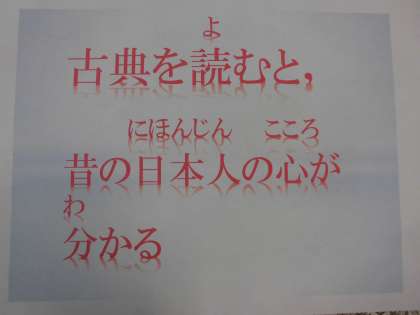 よ
古典を読むと,
にほんじん こころ
昔の日本人の心が
わ
分かる